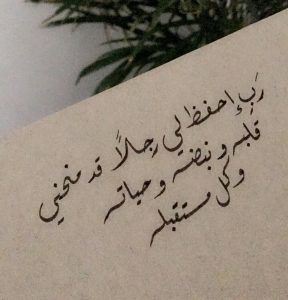 رَبِّ إحفظ لي رجلاً قد منحني
قلبه و نبضه و حياته
وكل مستقبله